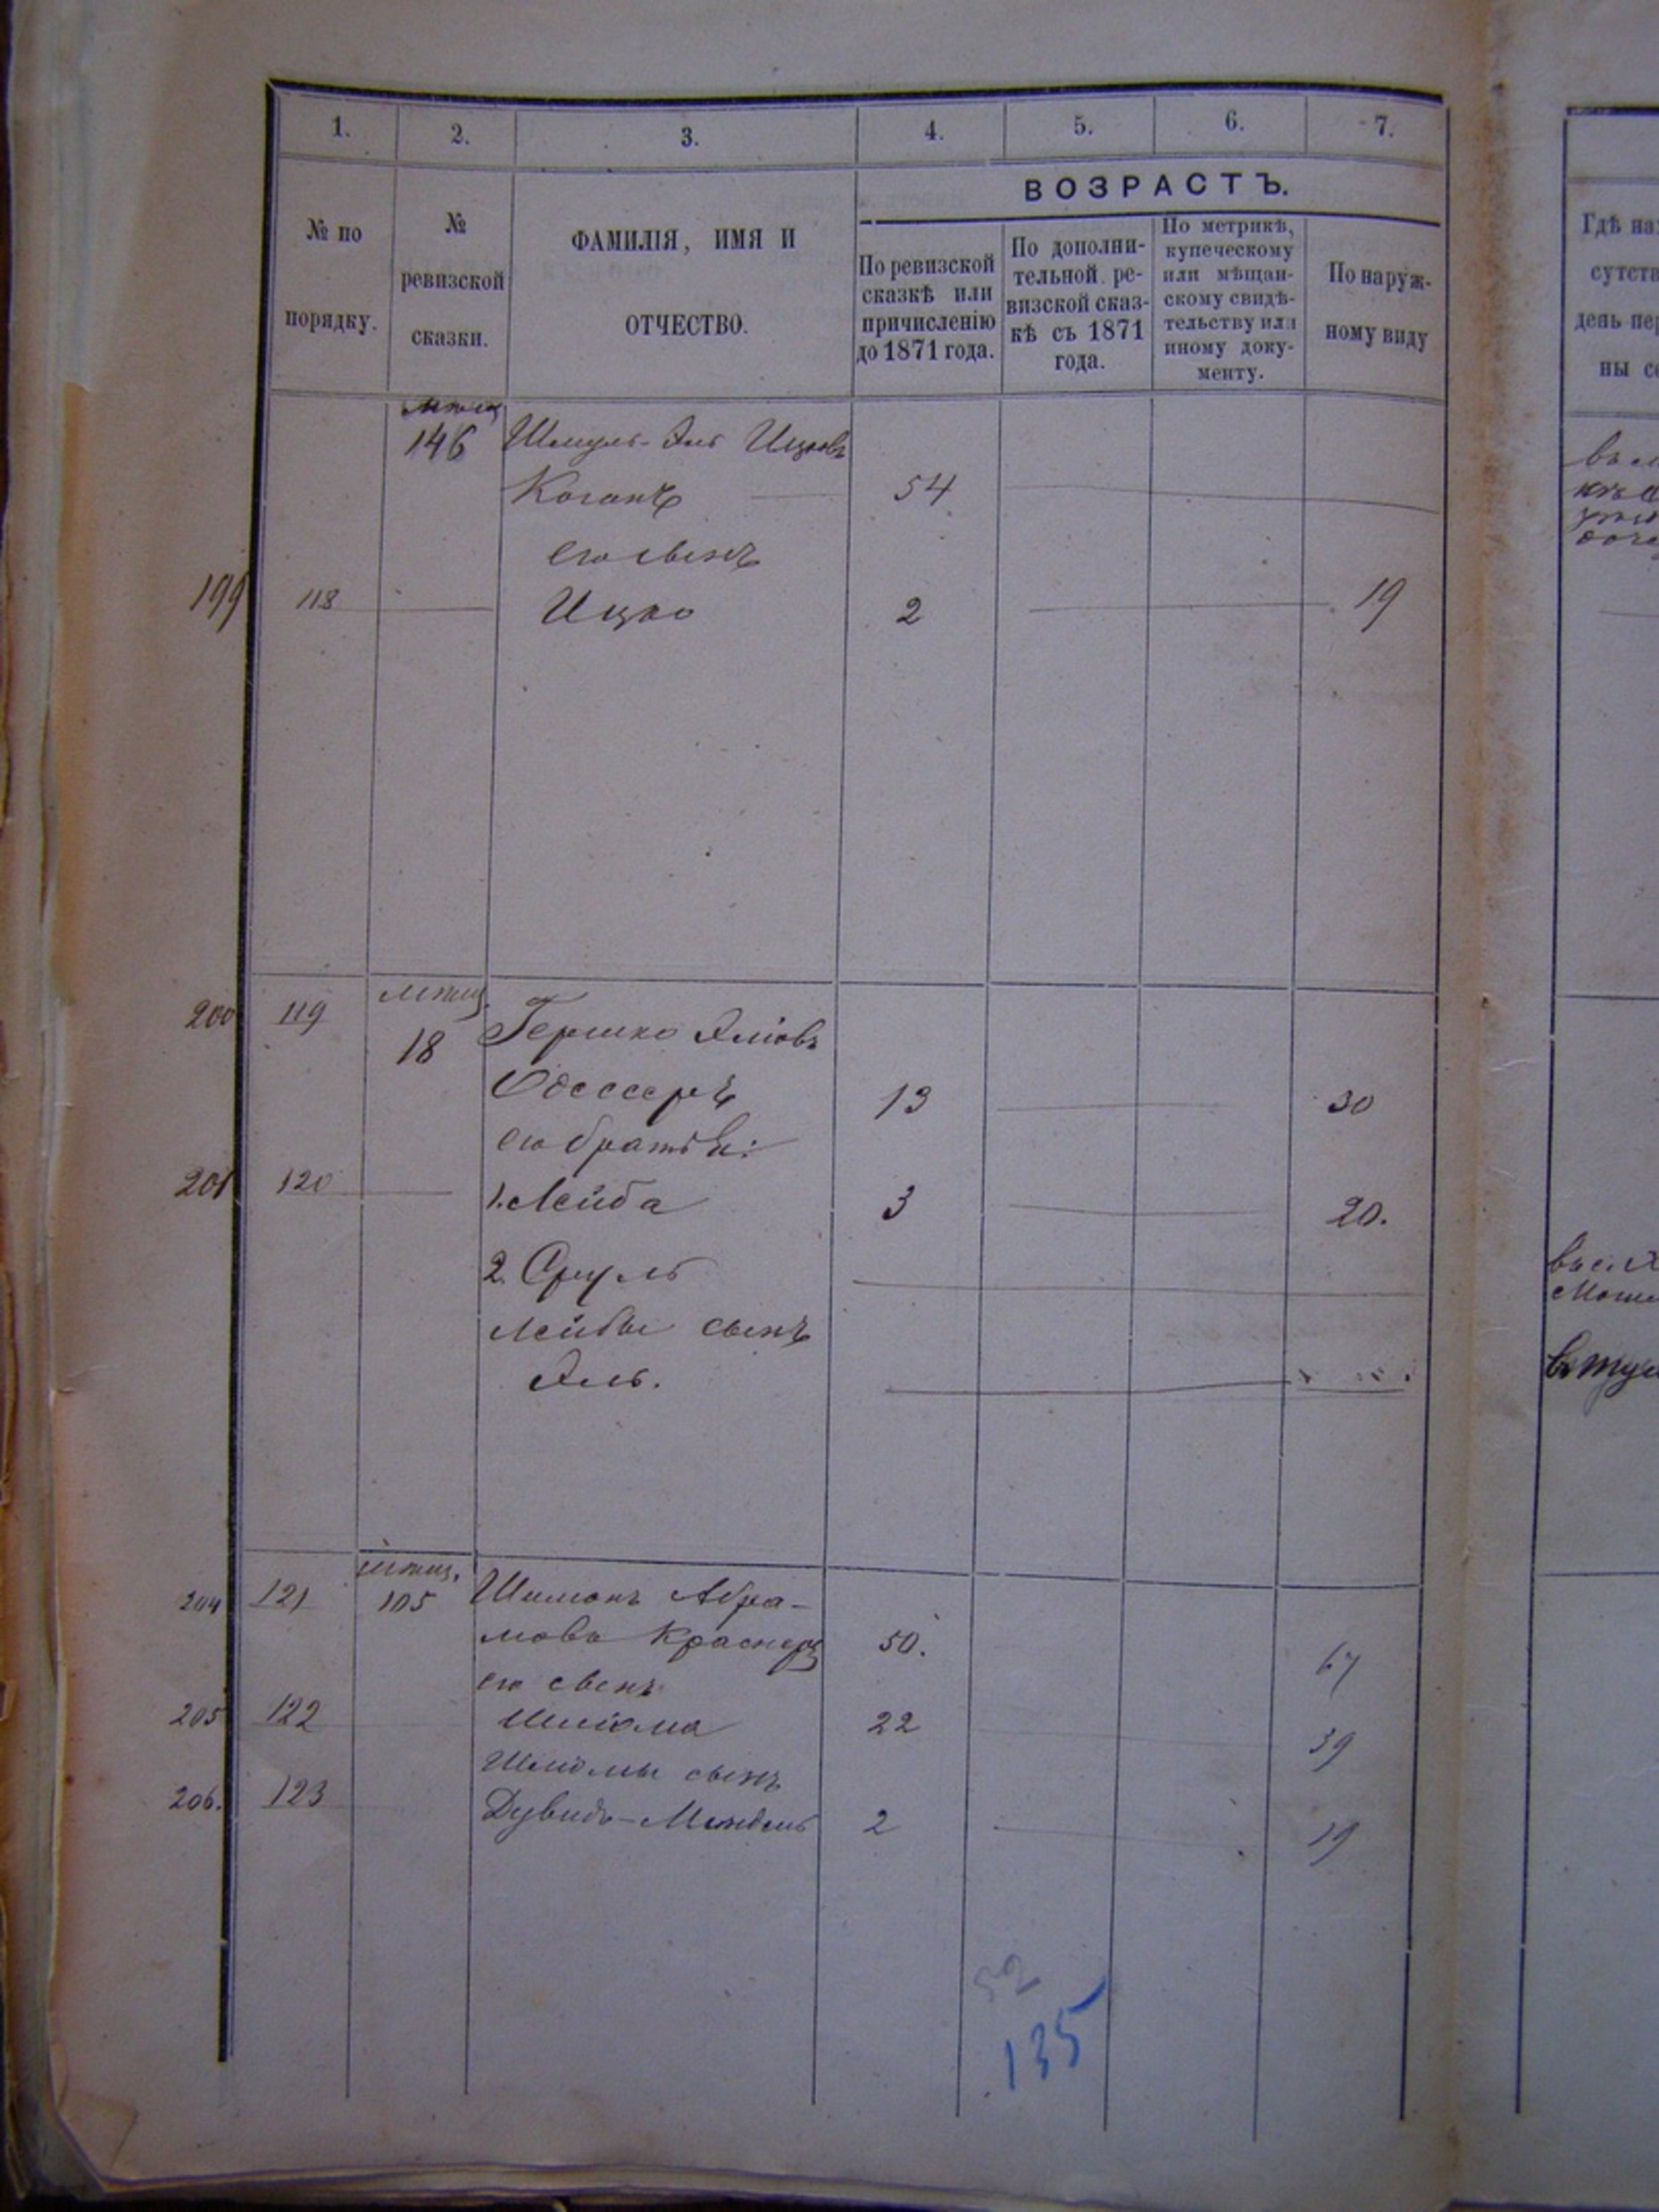 1. 2. 3. 4. 5. 6. 7.
ВОЗРАСТЪ.
№ по порядку.
№ ревизской сказки.
ФАМИЛІЯ, ИМЯ И ОТЧЕСТВО.
По ревизской сказкѣ или причисленію до 1871 года.
По дополни-тельной ре-визской сказ-кѣ съ 1871 года.
По метрикѣ, купеческому или мѣщан-скому свидѣ-тельству или иному доку-менту.
По наруж-ному виду
146 Шмуль-Эль Ицковъ
Коганъ 54
его сынъ
199 118 Ицко 2 19
200 119 18 Гершко Эліовъ
Одессеръ 13 30
его братья:
201 120 1. Лейба 3 20.
2. Сруль
Лейбы сынъ
Эль.
204 121 105 Шимонъ Абра-
мовъ 50. 67
его сынъ
205 122 Шліома 22 39
Шліомы сынъ
206. 123 Дувидъ-Мендель 2 19
52
135
Гдѣ на
сутств
день пер
ны с